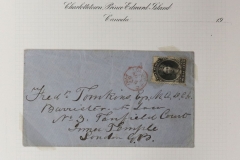 Charlottetown, Prince Edward Island
Canada
19
Fredk. Tomkins Esq. M.A. D.C.L.
Barrister at Law
No. 3. Tanfield Court
Inner Temple
London G.B.